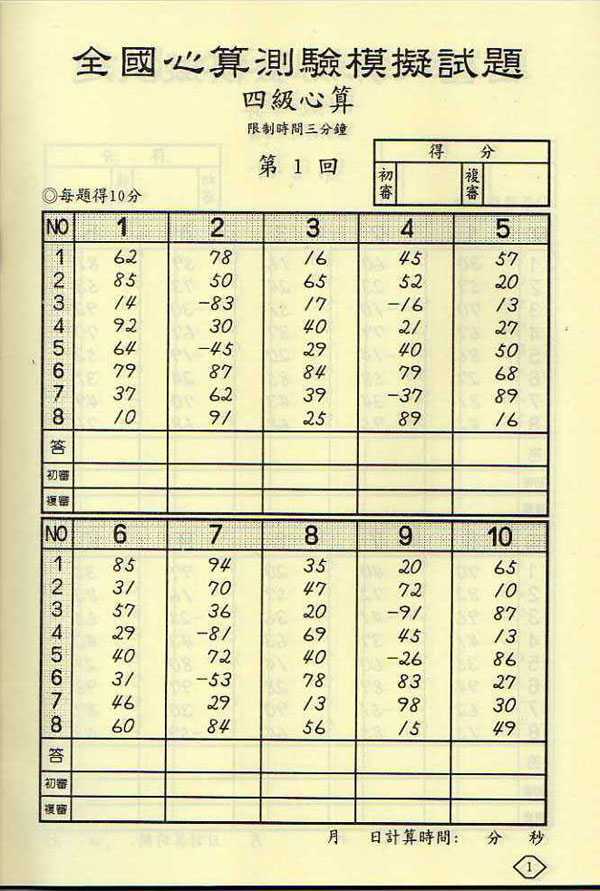 全國心算測驗模擬試題
四級心算
限制時間三分鐘
第 1 回
得 分
初審 複審
◎每題得10分
NO 1 2 3 4 5
1 62 78 16 45 57
2 85 50 65 52 20
3 14 -83 17 -16 13
4 92 30 40 21 27
5 64 -45 29 40 50
6 79 87 84 79 68
7 37 62 39 -37 89
8 10 91 25 89 16
答
初審
複審
NO 6 7 8 9 10
1 85 94 35 20 65
2 31 70 47 72 10
3 57 36 20 -91 87
4 29 -81 69 45 13
5 40 72 40 -26 86
6 31 -53 78 83 27
7 46 29 13 98 30
8 60 84 56 15 49
答
初審
複審
月 日計算時間: 分 秒
1